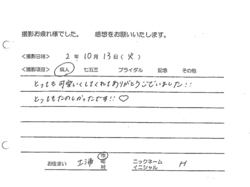 撮影お疲れ様でした。 感想をお願いいたします。
<撮影日時> 2年10月13日(火)
<撮影項目> 成人 七五三 ブライダル 記念 その他
とっても可愛いくしてくれてありがとうございました!!
とってもたのしかったです!!♡
お住まい 土浦 市 町 村 ニックネーム イニシャル H